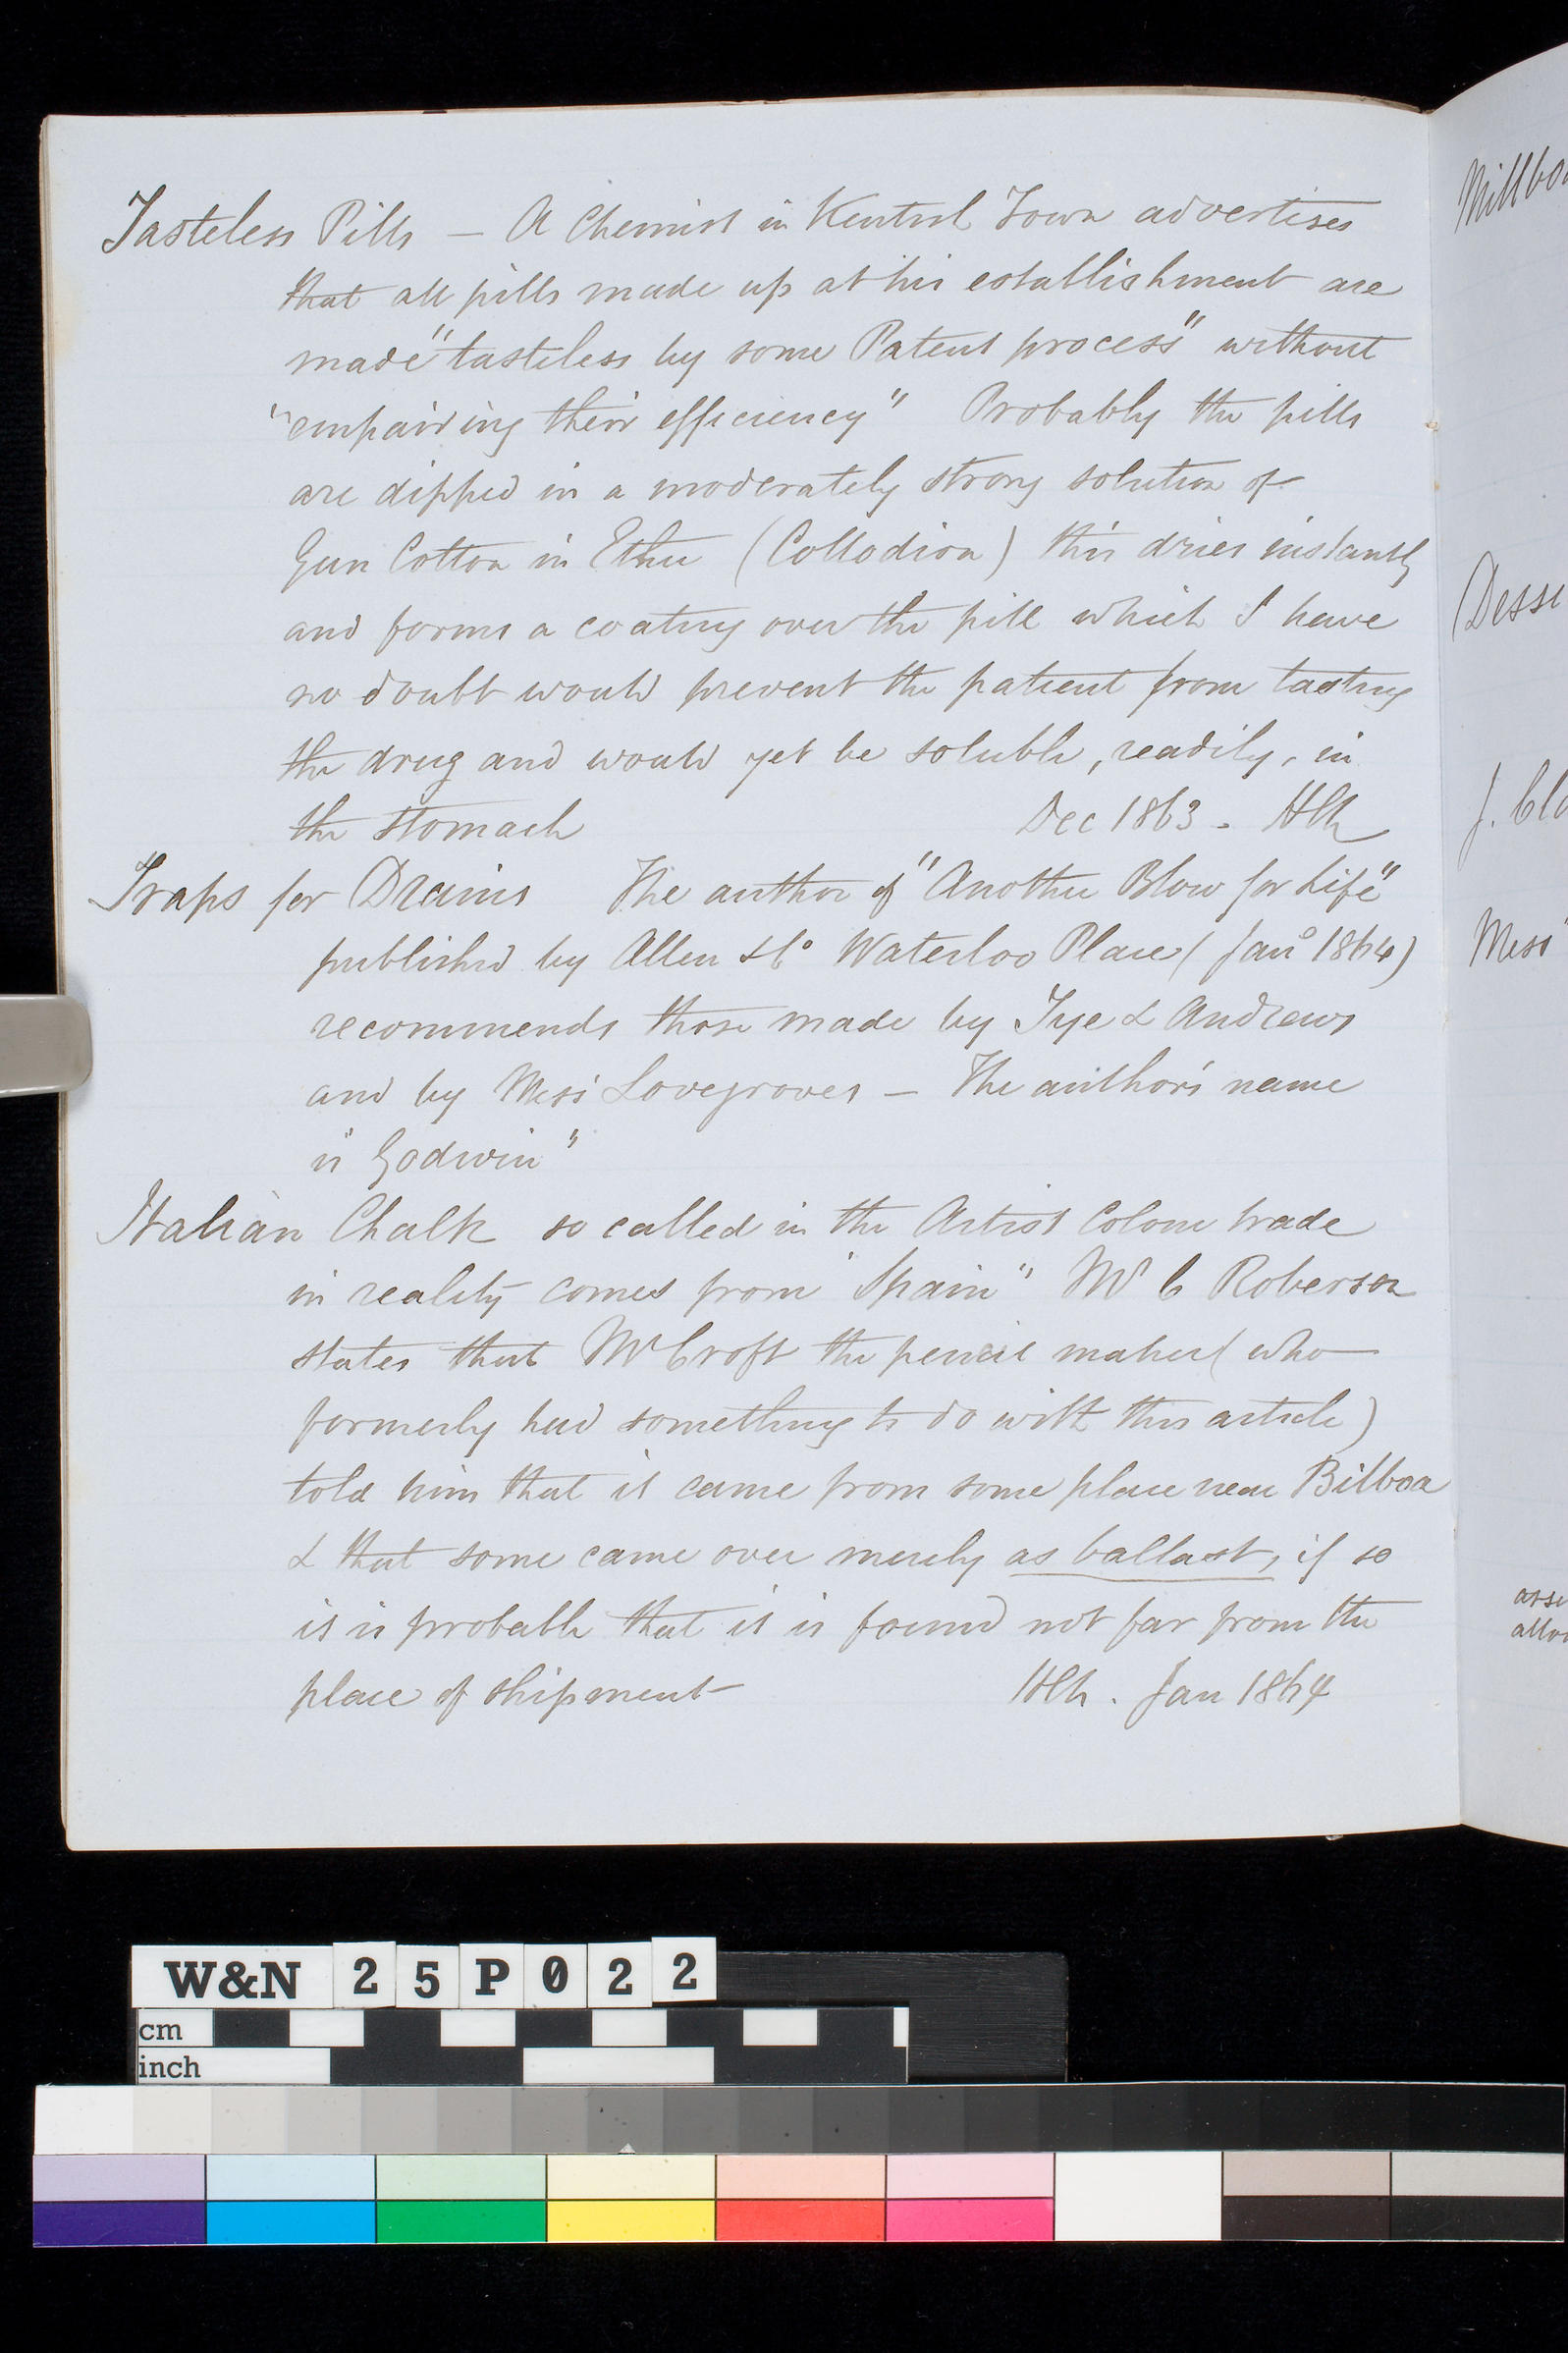 Tasteless Pills — A Chemist in Kentish Town advertises
that all pills made up at his establishment are
made "tasteless by some Patent process" without
"empairing their efficiency" Probably the pills
are dipped in a moderately strong solution of
Gun Cotton in Ether (Collodion) this dries instantly
and forms a coating over the pill which I have
no doubt would prevent the patient from tasting
the drug and would yet be soluble, readily, in
the stomach Dec 1863 -
Traps for Drains The author of "Another Blow for Life"
published by Allen & Co Waterloo Place (Jany 1864)
recommends those made by Tye & Andrews
and by Messs Lovegroves — The author's name
is "Godwin"
Italian Chalk so called in the Artist Colour trade
in reality comes from "Spain" Mr C Roberson
states that Mr Croft the pencil maker (who
formerly had something to do with this article)
told him that it came from some place near Bilboa
& that some came over merely as ballast, if so
it is probable that it is found not far from the
place of shipment Jan 1864
Millbo
(Desse
J. Cla
Mess
asse
allo
W&N 25P022
cm
inch